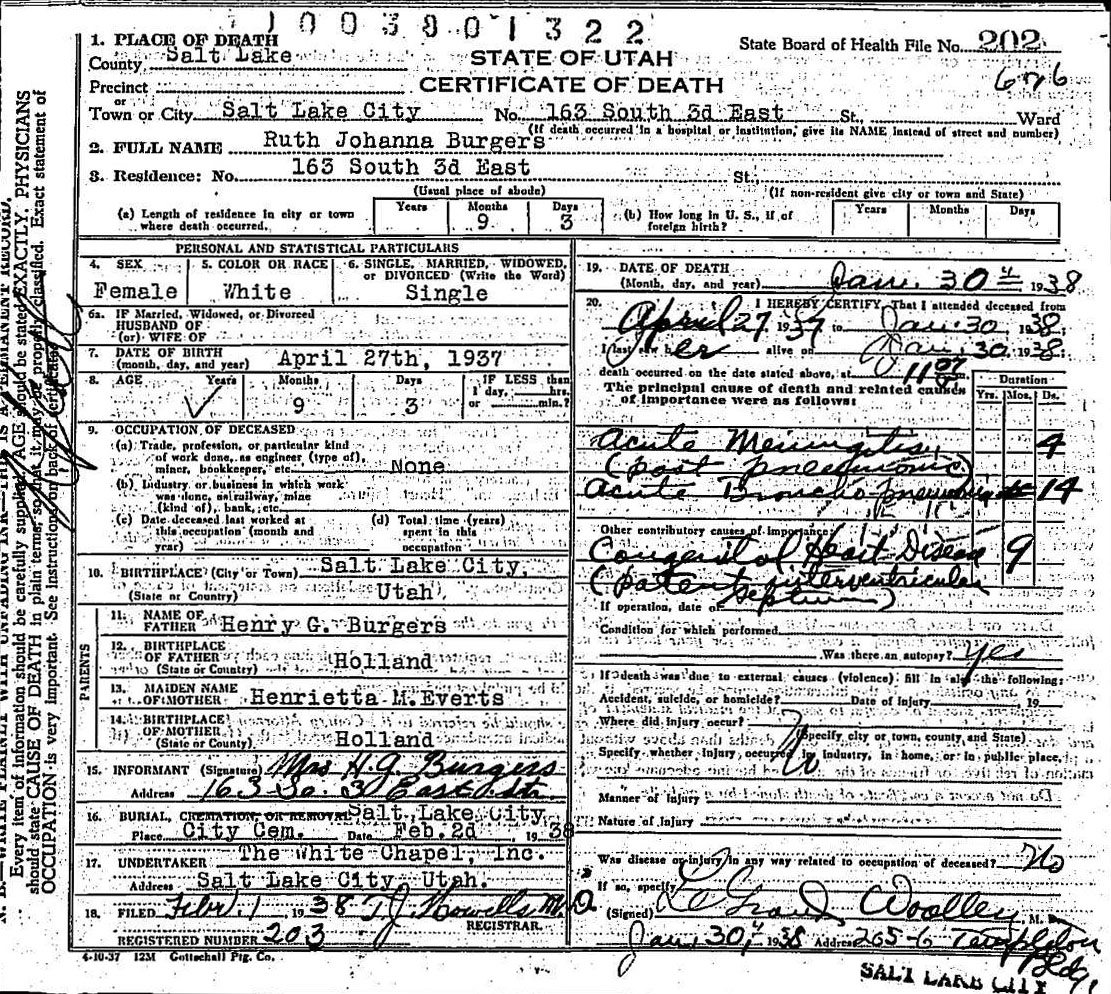 1003801322
1. PLACE OF DEATH
County Salt Lake
STATE OF UTAH
CERTIFICATE OF DEATH
State Board of Health File No. 202
676
Precinct
or
Town or City Salt Lake City No. 163 South 3d East St., Ward
(If death occurred in a hospital or institution, give its NAME instead of street and number)
2. FULL NAME Ruth Johanna Burgers
3. Residence: No. 163 South 3d East St.
(Usual place of abode) (If non-resident give city or town and State)
(a) Length of residence in city or town where death occurred. Years Months 9 Days 3
(b) How long in U. S., if of foreign birth? Years Months Days
PERSONAL AND STATISTICAL PARTICULARS
4. SEX Female
5. COLOR OR RACE White
6. SINGLE, MARRIED, WIDOWED, or DIVORCED (Write the Word) Single
6a. IF Married, Widowed, or Divorced
HUSBAND OF
(or) WIFE OF
7. DATE OF BIRTH
(month, day, and year) April 27th, 1937
8. AGE Years Months 9 Days 3
IF LESS than
1 day, hrs.
or min.?
9. OCCUPATION OF DECEASED
(a) Trade, profession, or particular kind
of work done, as engineer (type of),
miner, bookkeeper, etc. None
(b) Industry or business in which work
was done, as railway, mine
(kind of), bank, etc.
(c) Date deceased last worked at
this occupation (month and
year)
(d) Total time (years)
spent in this
occupation
10. BIRTHPLACE (City or Town) Salt Lake City,
(State or Country) Utah
PARENTS
11. NAME OF
FATHER Henry G. Burgers
12. BIRTHPLACE
OF FATHER
(State or Country) Holland
13. MAIDEN NAME
OF MOTHER Henrietta M. Everts
14. BIRTHPLACE
OF MOTHER
(State or County) Holland
15. INFORMANT (Signature) Mrs H. G. Burgers
Address 163 So. 3 East St.
16. BURIAL, CREMATION, OR REMOVAL Salt Lake City
Place City Cem. Date Feb. 2d 1938
17. UNDERTAKER The White Chapel, Inc.
Address Salt Lake City Utah.
18. FILED Feb. 1 1938 T. J. Howells M.D.
REGISTRAR.
REGISTERED NUMBER 203
4-10-37 12M Gottschall Ptg. Co.
19. DATE OF DEATH
(Month, day, and year) Jan. 30 1938
20. I HEREBY CERTIFY, That I attended deceased from
April 27 1937 to Jan. 30 1938;
I last saw her alive on Jan. 30 1938;
death occurred on the date stated above, at 11
The principal cause of death and related causes
of importance were as follows:
Duration
Yrs. Mos. Ds.
Acute Meningitis 4
(post pneumonic)
Acute Broncho pneumonia 14
Other contributory causes of importance:
Congenital Heart Disease 9
(patent interventricular
septum)
If operation, date of
Condition for which performed
Was there an autopsy? Yes
If death was due to external causes (violence) fill in also the following:
Accident, suicide, or homicide? Date of injury 19
Where did injury occur?
(Specify city or town, county, and State)
Specify whether injury occurred in industry, in home, or in public place,
Manner of injury
Nature of injury
Was disease or injury in any way related to occupation of deceased? No
If so, specify
(Signed) LeGrand Woolley M.
Jan. 30, 1938 Address 265-6 Templeton
Bldg.
SALT LAKE CITY
N. B.—WRITE PLAINLY WITH UNFADING INK—THIS IS A PERMANENT RECORD.
Every item of information should be carefully supplied. AGE should be stated EXACTLY. PHYSICIANS
should state CAUSE OF DEATH in plain terms, so that it may be properly classified. Exact statement of
OCCUPATION is very important. See instructions on back of certificate.